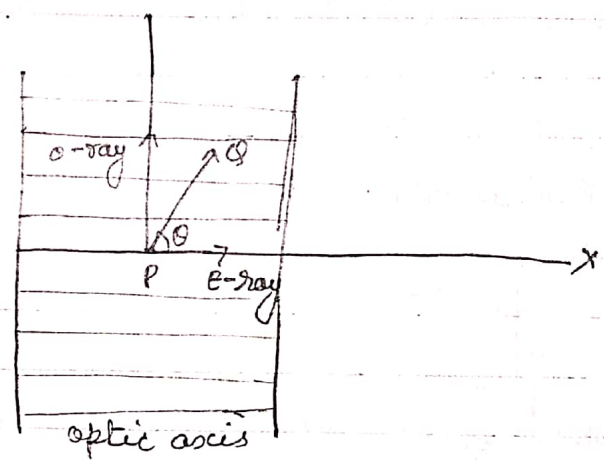 o-ray
Q
θ
P
E-ray
X
optic axis